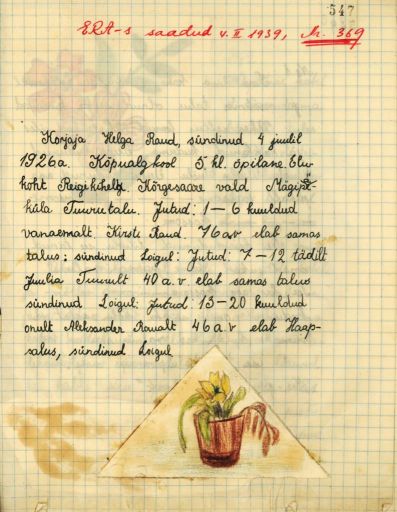 547
ERA-s saadud 4. II 1939, Nr. 369
Korjaja Helga Raud, sündinud 4 juulil
1926 a. Kõpualgkool 5 kl. õpilane. Elu-
koht Reigikihelk. Kõrgesaare vald Mägipe-
küla Tuuru talu. Jutud: 1 — 6 kuuldud
vanaemalt. Kirste Raud. 76 a.v elab samas
talus; sündinud Loigul: Jutud: 7 — 12 tädilt
Juulia Tuurult 40 a.v. elab samas talus
sündinud Loigul: jutud: 13 — 20 kuuldud
onult Aleksander Raualt 46 a.v elab Haap-
salus, sündinud Loigul